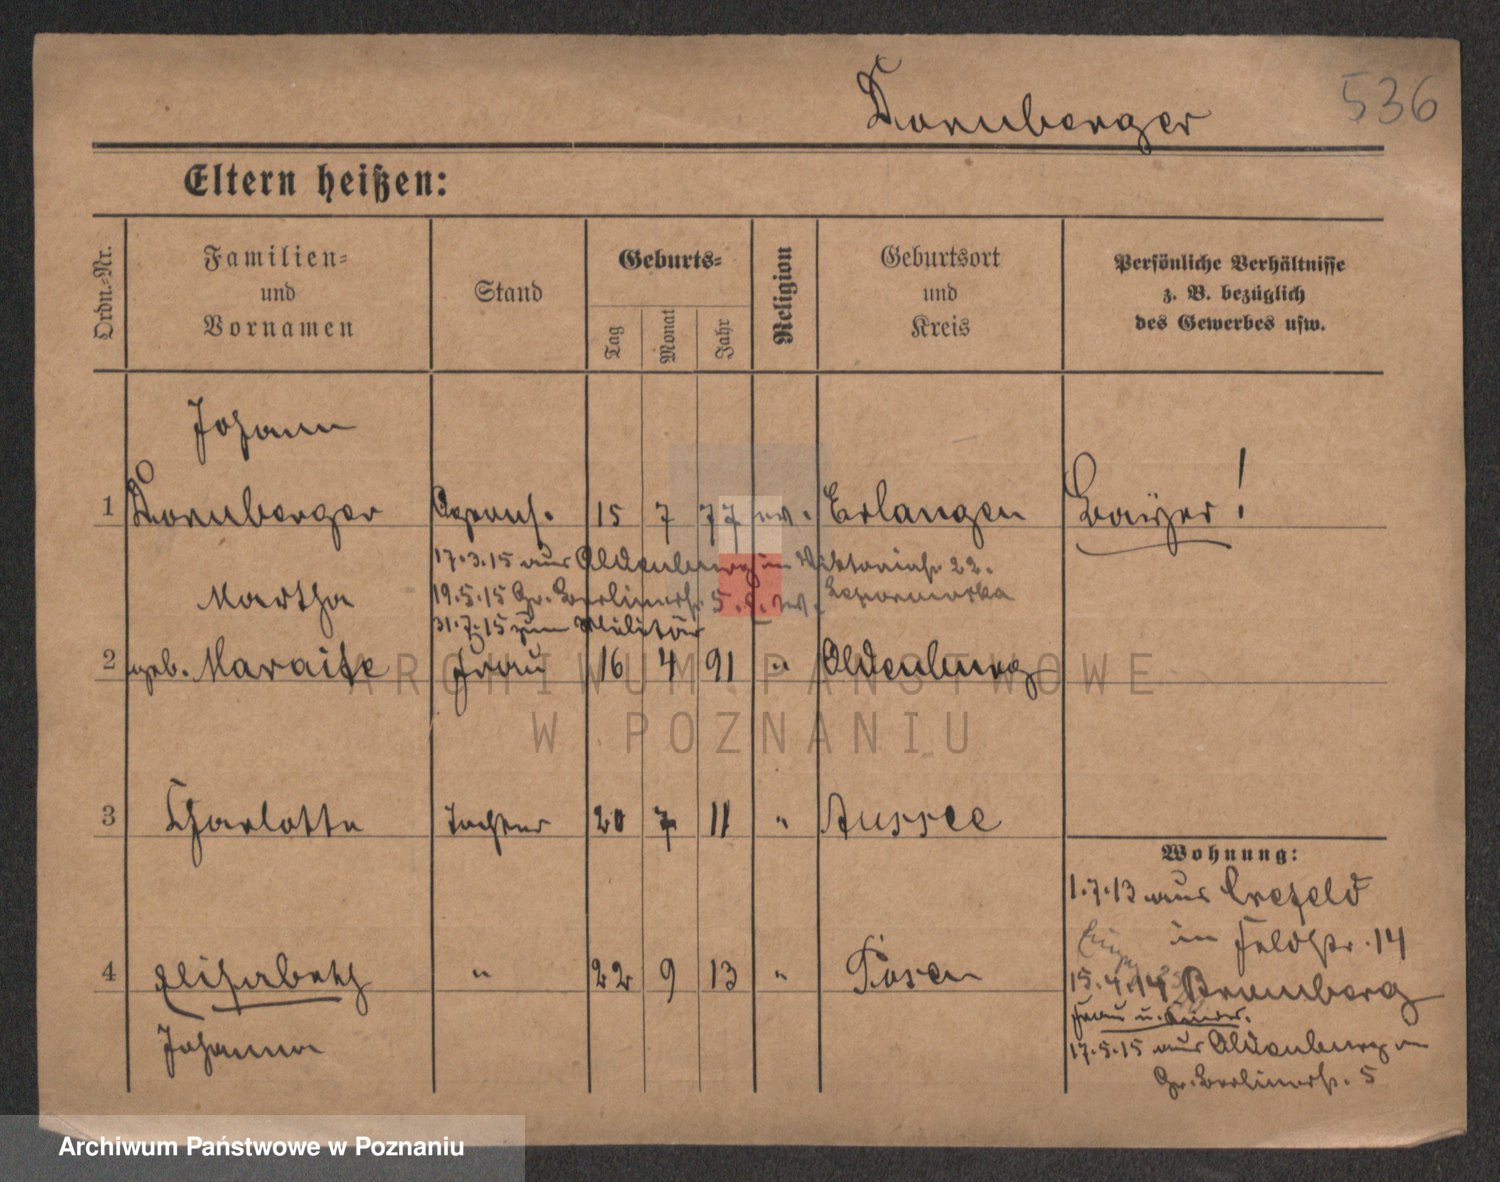 Kornberger
536
Eltern heißen:
Ordn.-Nr.
Familien-
und
Vornamen
Stand
Geburts-
Tag
Monat
Jahr
Religion
Geburtsort
und
Kreis
Persönliche Verhältnisse
z. B. bezüglich
des Gewerbes usw.
Johann
1 Kornberger 15 7 77 ev. Erlangen Bayer!
17.3.15 aus Oldenburg in Viktoriastr. 22.
Martha
19.5.15 Gr. Berlinerstr. 5.
31.7.15 zum Militär
2 geb. Frau 16 4 91 " Oldenburg
3 Charlotte Tochter 20 7 11 " Aussee
Wohnung:
1.7.13 aus Crefeld
in Feldstr. 14
4 Elisabeth " 22 9 13 " Posen
15.4.14 Bromberg
Frau u. Kinder.
Johanna
17.5.15 aus Oldenburg in
Gr. Berlinerstr. 5
ARCHIWUM PAŃSTWOWE
W POZNANIU
Archiwum Państwowe w Poznaniu